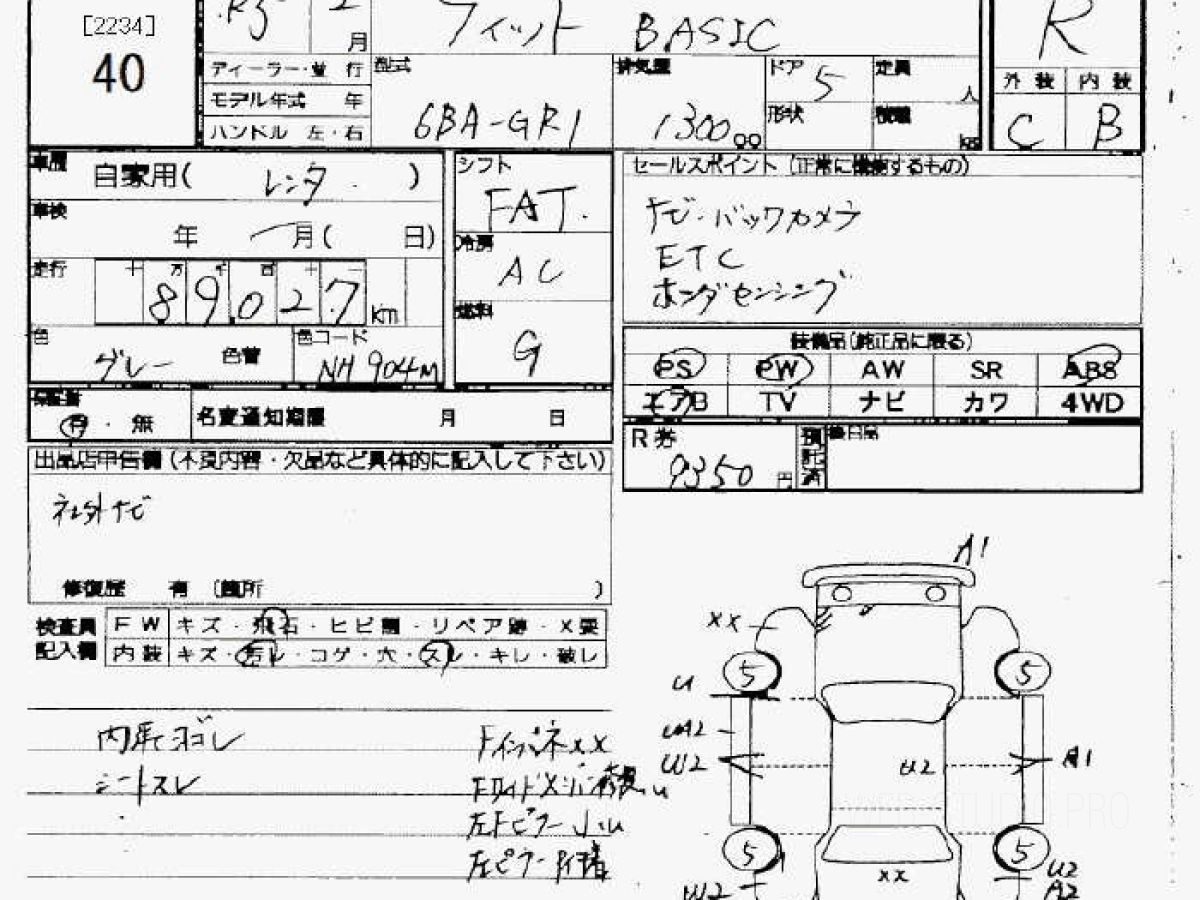 [2234]
40
R5 2月
フィット BASIC
R
ディーラー・並 行
モデル年式 年
ハンドル 左・右
型式
6BA-GR1
排気量
1300 CC
ドア 5
形状
定員 人
積載 kg
外装 内装
C B
車歴 自家用( レンタ )
車検 年 月( 日)
走行 十 万 千 百 十 一
89027 km
色 グレー 色替
色コード NH904M
シフト
FAT
冷房
AC
燃料
G
セールスポイント (正常に機能するもの)
ナビ・バックカメラ
ETC
ホンダセンシング
装備品(純正品に限る)
PS PW AW SR ABS
エアB TV ナビ カワ 4WD
保証書 有・無
名変通知期限 月 日
R券 9350 円 預託済 後日品
出品店申告欄(不良内容・欠品など具体的に記入して下さい)
社外ナビ
修復歴 有 〔箇所 )
検査員記入欄
FW キズ・飛石・ヒビ割・リペア跡・X要
内装 キズ・汚レ・コゲ・穴・スレ・キレ・破レ
内張ヨゴレ
シートスレ
FインパネXX
左Fピラー小U
左ピラー
A1
XX
5 5
U
UA2
U2
U2
A1
5 5
XX
U2
A2
W2